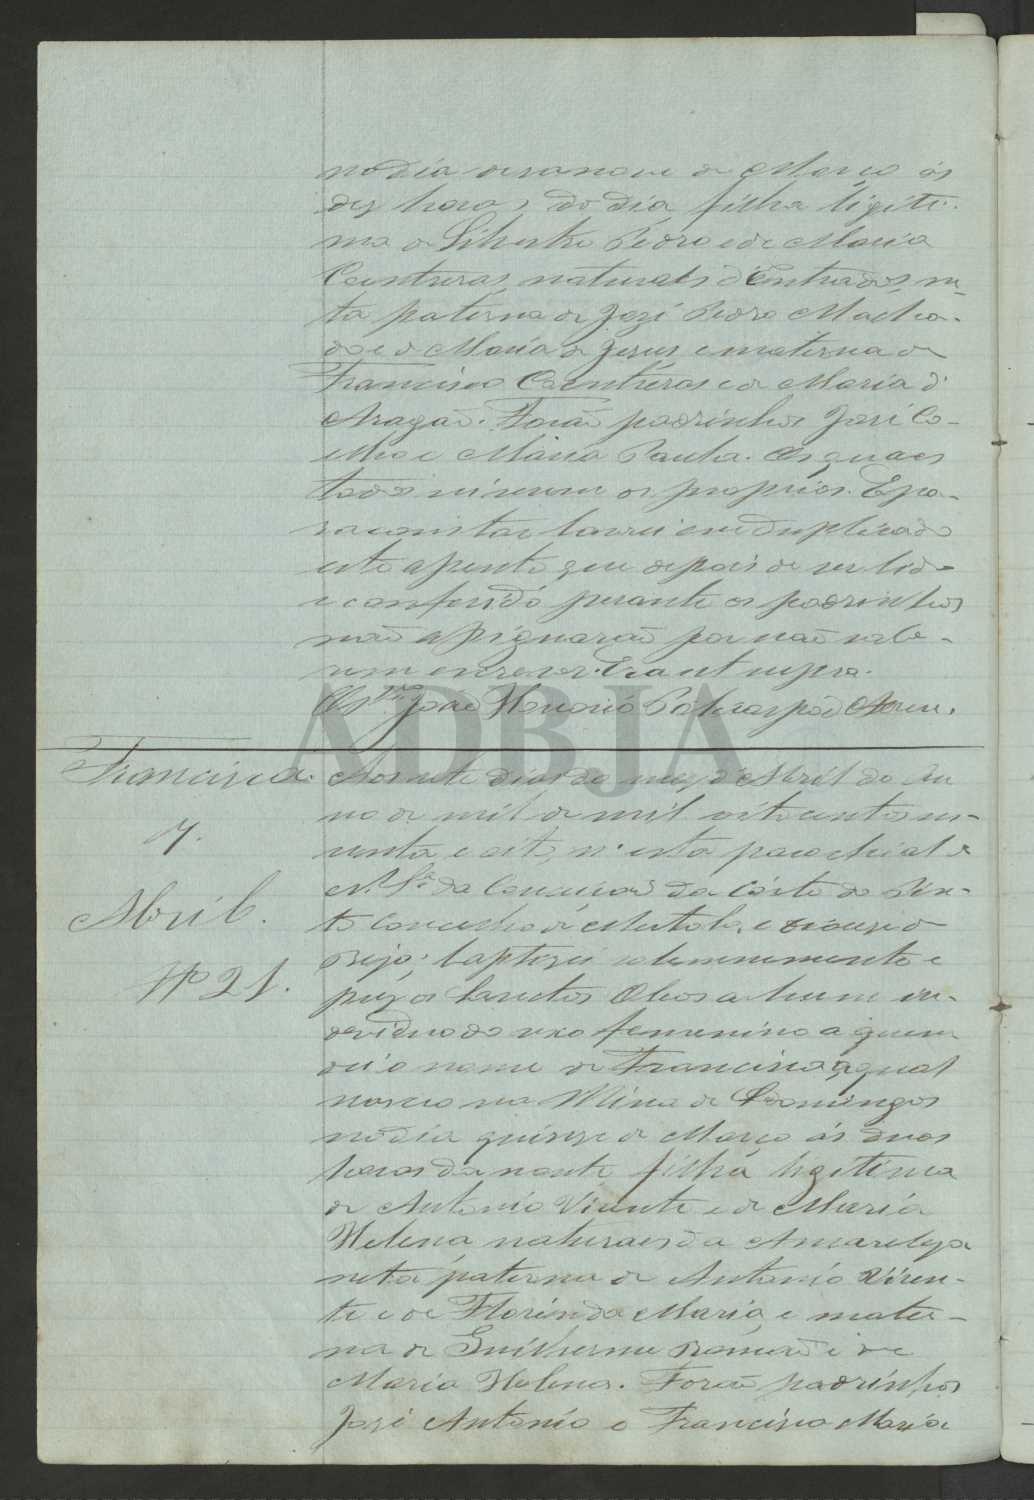 no dia desanove de Março ás
dez horas do dia filha legiti-
ma de Silvestre Pedro e de Maria
Contreras, naturaes d'Entradas, ne-
ta paterna de José Pedro Macha-
do e de Maria de Jesus e materna de
Francisco Contreras e de Maria d'
Aragão. Forão padrinhos José Co-
elho e Maria Paula. Os quaes
todos sei serem os proprios. E pa-
ra constar lavrei em duplicado
este assento que depois de ser lido
e conferido perante os padrinhos
não assignarão por não sabe-
rem escrever. Era ut supra.
João
Francisca. Aos sete dias do mez d'Abril do An-
no de mil de mil oito centos se-
7. senta e oito, n'esta parochial de
N. Sra. da Conceição da Côrte do Pin-
Abril. to Concelho de Mertola, e diocese de
Beja; baptizei solemnemente e
Nº 21. puz os Sanctos Oleos a hum in-
dividuo do sexo femenino a quem
dei o nome de Francisca, a qual
nasceo na Mina de S. Domingos
no dia quinze de Março ás duas
horas da noute filha legitima
de Antonio Vicente e de Maria
Helena, naturaes da
neta paterna de Antonio Vicen-
te e de Florinda Maria, e mater-
na de Guilherme e de
Maria Helena. Forão padrinhos
José Antonio e Francisca Maria
ADBJA